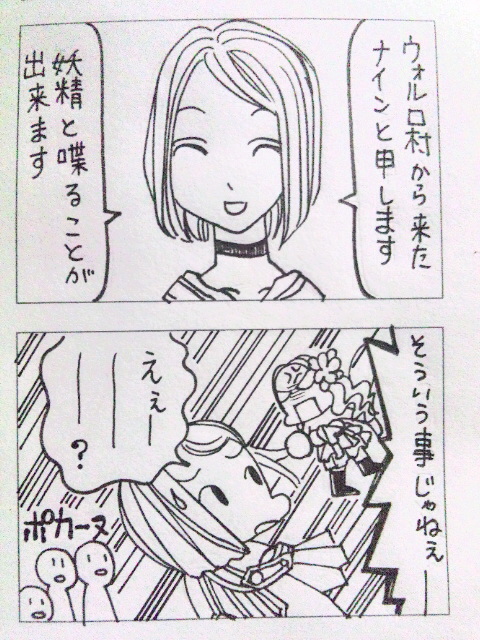 ウォルロ村から来た
ナインと申します
妖精と喋ることが
出来ます
そういう事じゃねぇー
えぇー
ーー?
ポカーヌ